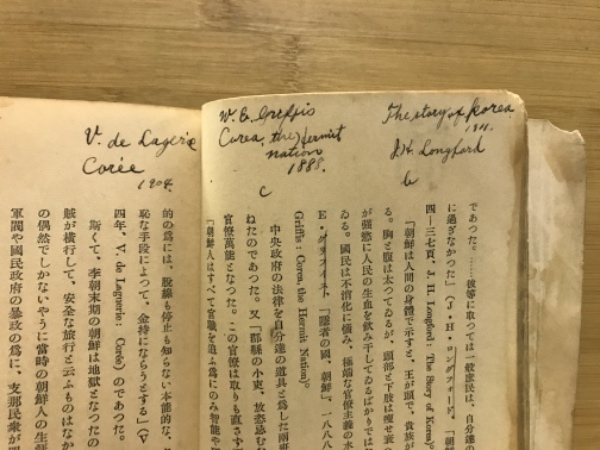 The story of Korea.
1911.
J.H. Longford
b
W. E. Griffis
Corea, the Hermit
nation
1888.
c
であつた。……彼等に取つては一般庶民は、自分達の
に過ぎなかつた」（J・H・ロングフォード、「朝鮮
四—三七頁、J. H. Longford: The Story of Korea)。
「朝鮮は人間の身體で示すと、王が頭で、貴族が
る。胸と腹は太つてゐるが、頭部と下肢は瘦せ衰
が强慾に人民の生血を飮み干してゐるばかりでは
ゐる。國民は不消化に惱み、極端な官僚主義の水
E・グリフイスト「隱者の國、朝鮮」、一八八八
Griffis: Corea, the Hermit Nation)。
中央政府の法律を自分達の道具と爲した兩班
ねたのであつた。又「郡縣の小吏、放恣忌む
官僚萬能となつた。この官僚は取りも直さず
「朝鮮人はすべて官職を追ふ爲にのみ智能や
V. de Lagerie
Corée
1904.
的の爲には、股線も停止も知らない本能的な、
恥な手段によつて、金持にならうとする」（V
四年、V. de Laguerie: Corée) のであつた。
斯くて、李朝末期の朝鮮は地獄となつたの
賊が橫行して、安全な旅行と云ふものはなか
の偶然でしかないやうに當時の朝鮮人の生
軍閥や國民政府の暴政の爲に、支那民衆が